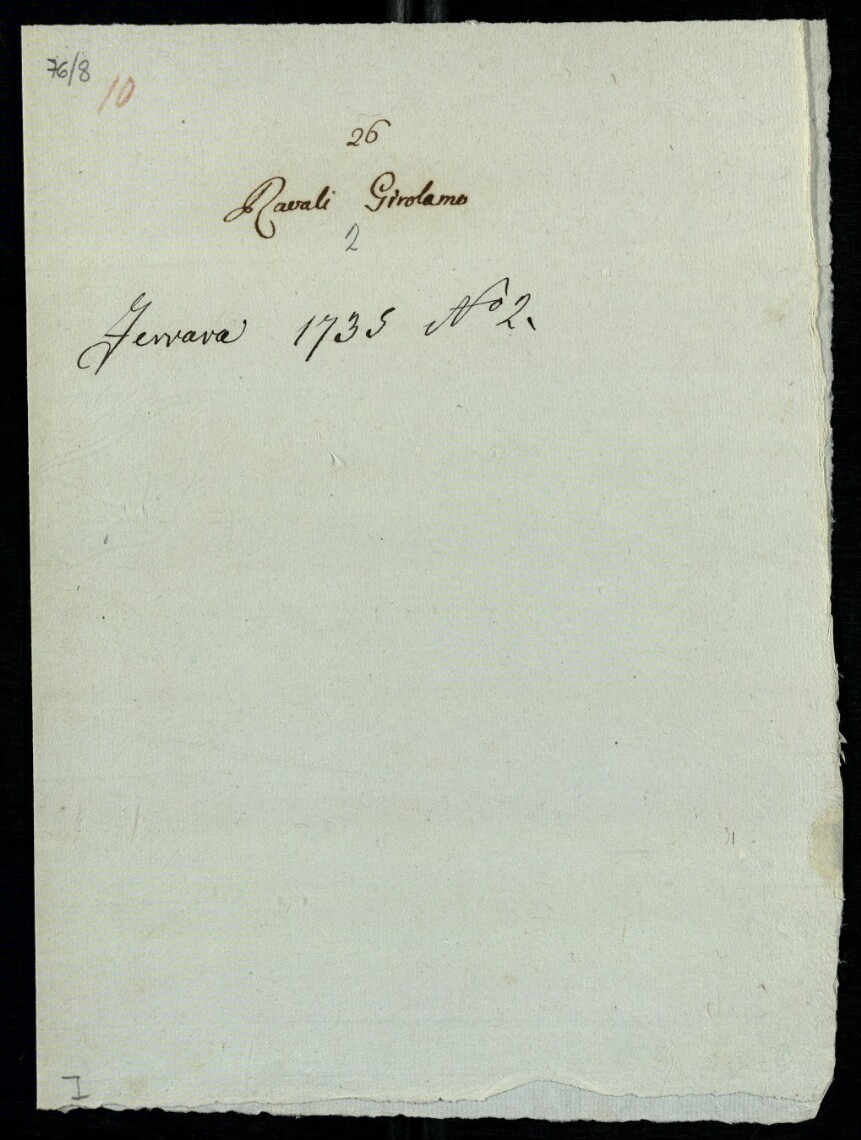 76/8
10
26
Ravali Girolamo
2
Ferrara 1735 No 2.
I